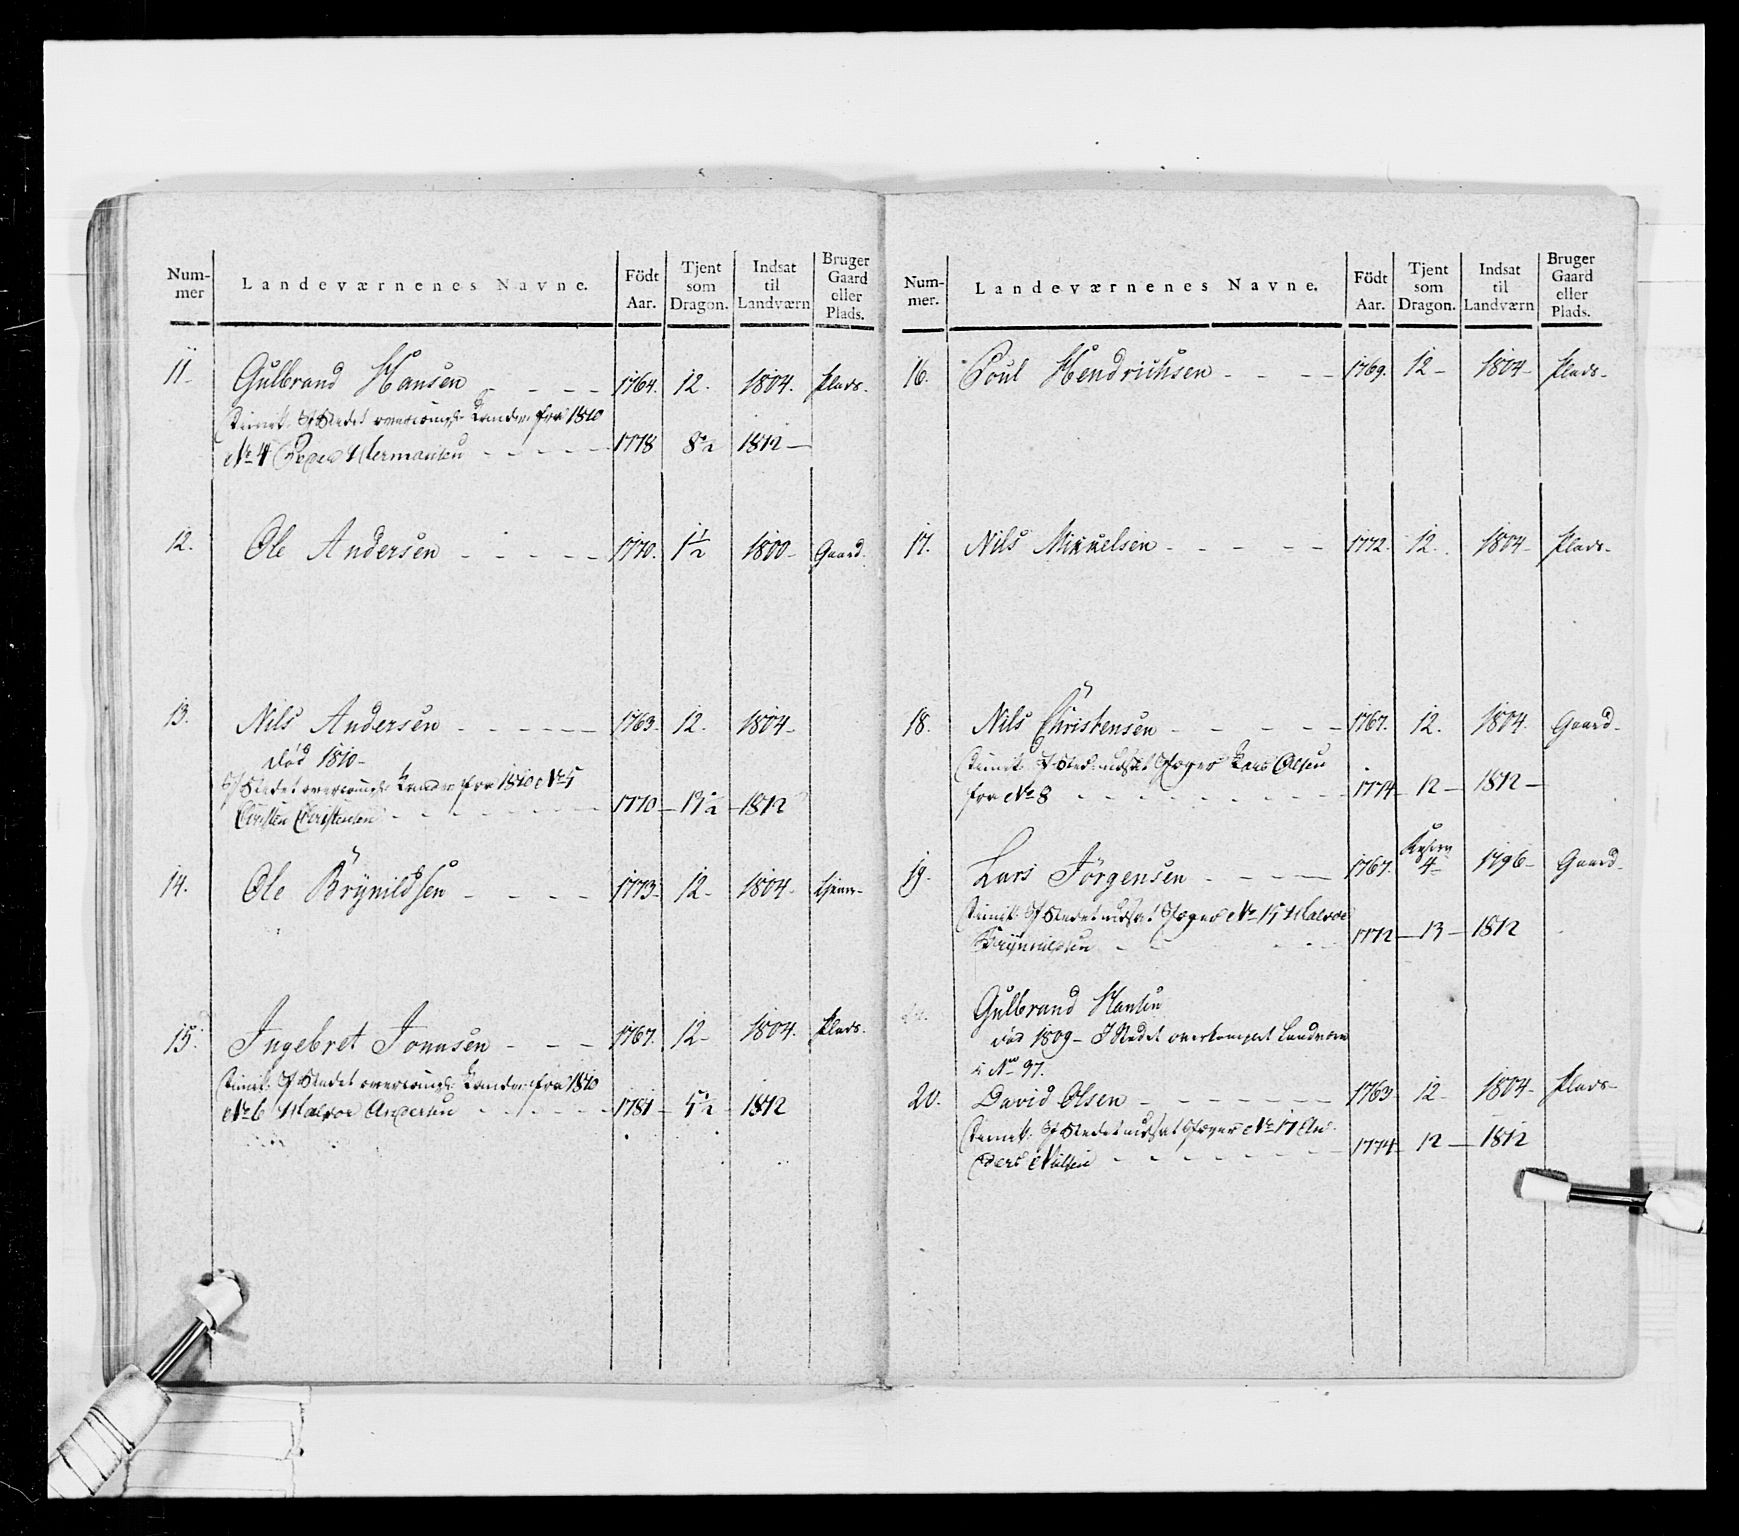 Num-
mer
Landeværnenes Navne.
Födt
Aar.
Tjent
som
Dragon.
Indsat
til
Landværn
Bruger
Gaard
eller
Plads.
11. Gulbrand Hansen - - - - 1764. 12. 1804. Plads.
Dimit. I Stedet fra 1810
No 4 Hermansen - - - - 1778 8½ 1812 —
12. Ole Andersen - - - - - 1770. 1½ 1800 - Gaard.
13. Nils Andersen - - - - - 1763. 12. 1804 -
død 1810 -
I Stedet fra 1810 No 5
Christen Christensen - - - - - 1770 - 13½ - 1812
14. Ole Brynildsen - - - - 1773 - 12 - 1804 -
15. Ingebret Jonnsen - - - 1767. 12 - 1804. Plads.
Dimit. I Stedet fra 1810
No 6 Halvor Andersen - - - - - 1781 - 5½ - 1812
Num-
mer.
Landeværnenes Navne.
Födt
Aar.
Tjent
som
Dragon.
Indsat
til
Landværn
Bruger
Gaard
eller
Plads.
16. Poul Hendrichsen - - - - 1769. 12 - 1804 - Plads -
17. Nils Mikkelsen - - - - - 1772. 12. 1804 - Plads -
18. Nils Christensen - - - - - 1767. 12. 1804. Gaard -
Dimit. I Sted indsat Lars Olsen
fra No 8 - - - - - - - - 1774 - 12 - 1812 -
19. Lars Jörgensen - - - - 1767. 4 - 1796 - Gaard -
Dimit. I Stedet indsat No 15 Halvor
Brynildsen - - 1772 - 13 - 1812
Gulbrand Hansen
död 1809 - I Stedet
No 97.
20. David Olsen - - - - - - - 1763 12 - 1804 - Plads -
Dimit. I Stedet indsat No 17 An-
ders Nilsen - - - - - - - 1774 - 12 - 1812